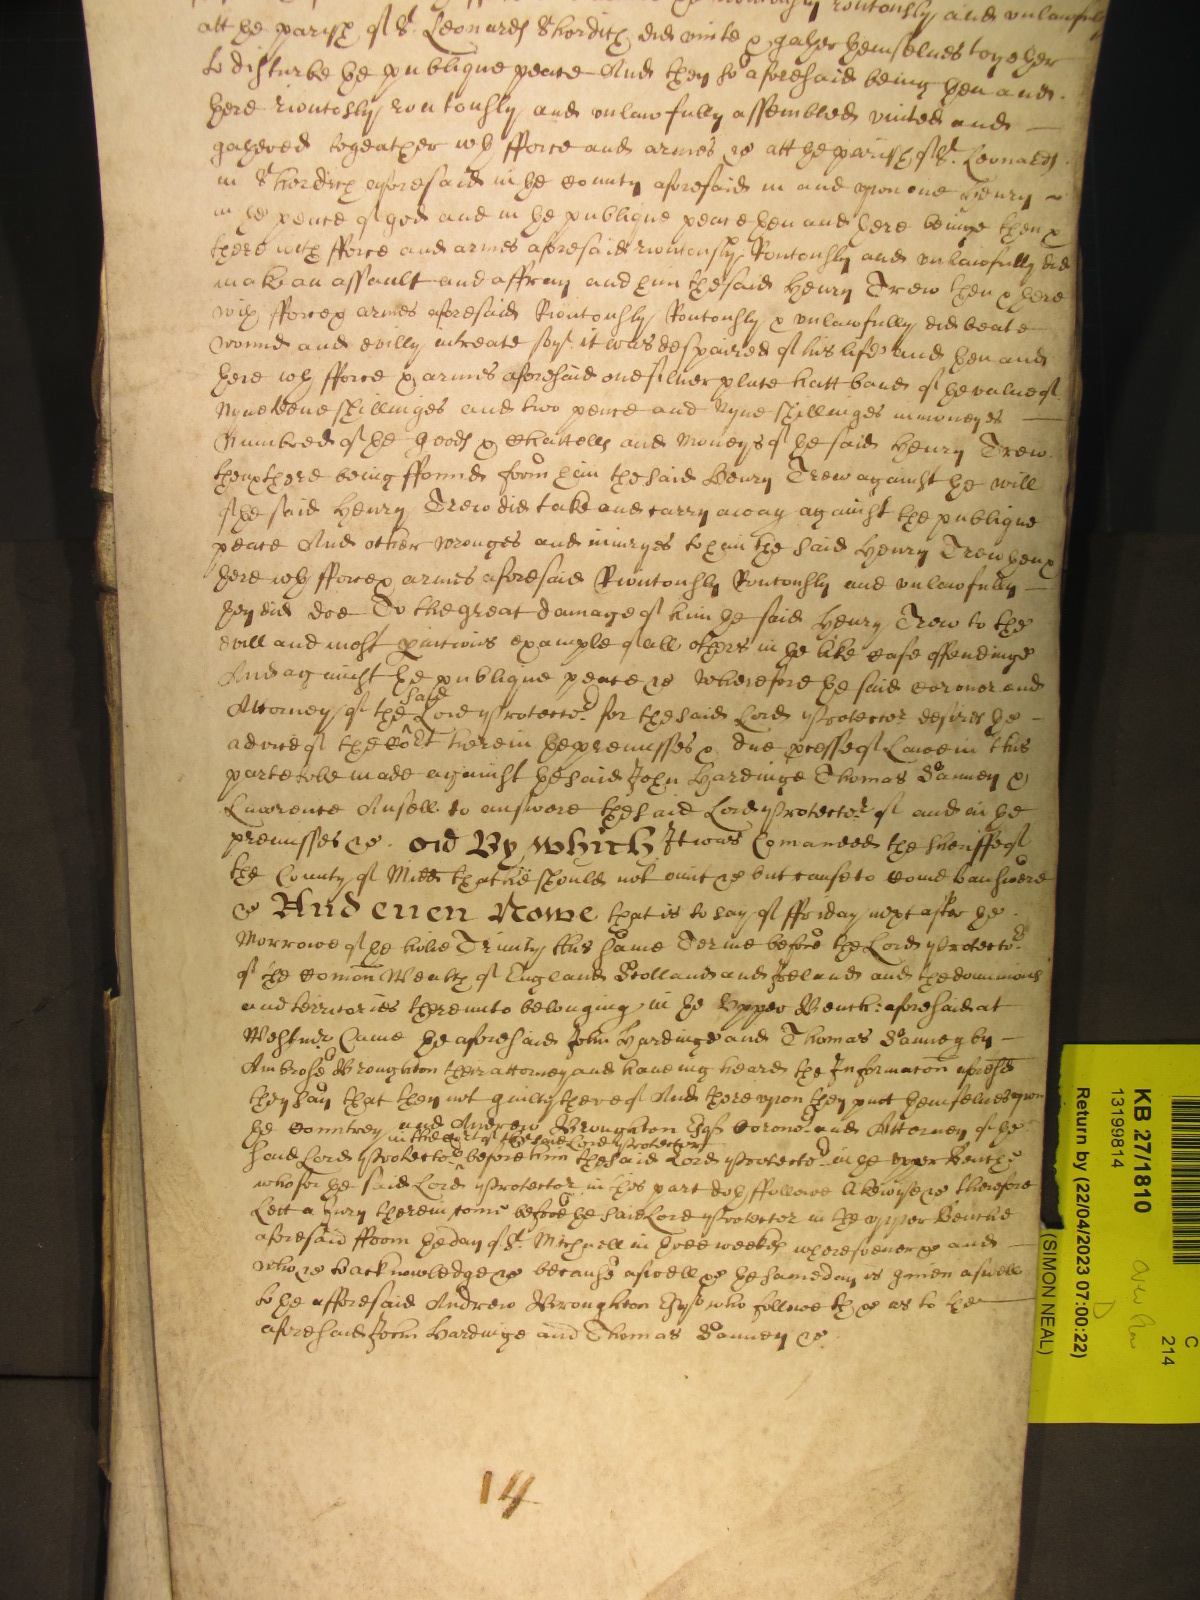 Riotously routously and unlawfully
att the parish of St. Leonards Shorditch did unite & gather themselves together
to disturbe the publique peace And they so aforesaid being then and
there rioutosly routously and unlawfully assembled united and
gathered togeather wth fforce and armes &c att the parish of St. Leonards
in Shorditch aforesaid in the county aforesaid in and upon one Henry
in the peace of god and in the publique peace then and there beinge then &
there with fforce and armes aforesaid rioutously Routously and unlawfully did
make an assault and affray and him the said Henry Trew then & there
with fforce & armes aforesaid Rioutously Routously & unlawfully did beate
wound and evilly intreate soe yt it was despaired of his life and then and
there wth fforce & armes aforesaid one silver plate hatt band of the value of
Nyneteene shillinges and two pence and Nyne shillinges in moneyes
Numbred of the goods & Chattells and Moneys of the said Henry Trew
then & there being ffound from him the said Henry Trew against the will
of the said Henry Trew did take and carry away against the publique
peace And other wronges and iniuryes to him the said Henry Trew then &
there wth fforce & armes aforesaid Rioutously Routously and unlawfully
they did doe To the great damage of him the said Henry Trew to the
evill and most pnitious example of all others in the like case offendinge
And against the publique peace &c Wherefore the said coroner and
Attorney of the said Lord Protector for the said Lord Protector desires the
advice of the Cort herein the premisses & due pcesse of Lawe in this
parte to be made against the said John Hardinge Thomas Danney &
Lawrence Ansell to answere the said Lord Protector of and in the
premisses &c. By which It was Comanded the sheriffe of
the County of Midd that he should not omit &c but cause to come to answere
&c And even Nowe that is to say of ffriday next after the
Morrowe of the holie Trinity this same Terme before the Lord Protector
of the Comon Wealth of England Scotland and Ireland and the dominions
and territories thereunto belonging in the Upper Bench aforesaid at
Westmr Came the aforesaid John Hardinge and Thomas Danney by
Ambrose Broughton their attorney and haveing heard the Informacon aforesd
they say that they not guilty thereof And thereupon they putt themselves upon
the Countrey and Andrew Broughton Esqr Coronor and Attorney of the
in the Cort of the said Lord Protector
said Lord Protector before him the said Lord Protector in the upper Bench
who for the said Lord Protector in this part doth ffollowe likewise &c therefore
Lett a Jury therein come before the said Lord Protector in the upper Bench
aforesaid ffrom the day of St. Michaell in three weekes wheresoever &c and
who &c to acknowledge &c because aswell &c the same day is given aswell
to the afforesaid Andrew Broughton Esqr who followeth &c as to the
aforesaid John Hardinge and Thomas Danney &c.
14
KB 27/1810
13199814
Return by (22/04/2023 07:00:22)
(SIMON NEAL)
C
214
D